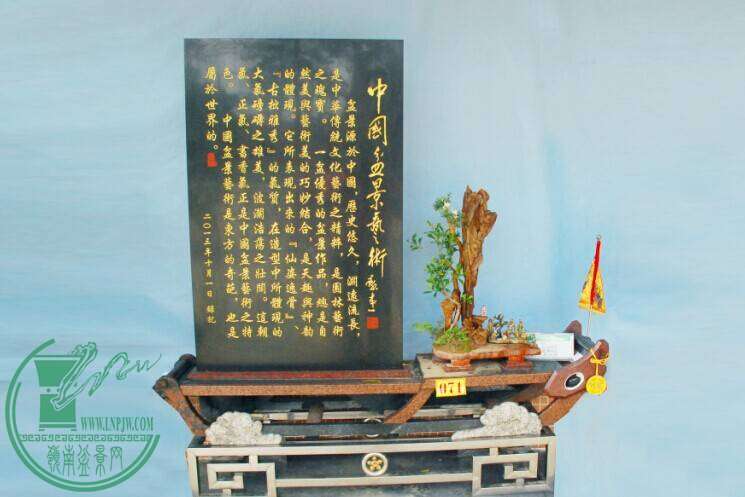 中國盆景藝術
盆景源於中國，歷史悠久，淵遠流長，
是中華傳統文化藝術之精粹，是園林藝術
之瑰寶。一盆優秀的盆景作品，總是自
然美與藝術美的巧妙結合，是天趣與神韵
的體現。它所表現出來的『仙姿逸骨』、
『古拙雅秀』的氣質，在造型中所體現的
大氣磅礴之雄美，波瀾浩蕩之壯闊。這朝
氣、正氣、書香氣正是中國盆景藝術之特
色。中國盆景藝術是東方的奇葩，也是
屬於世界的。
二〇一三年十月一日 錄記
071
WWW.LNPJW.COM
嶺南盆景网